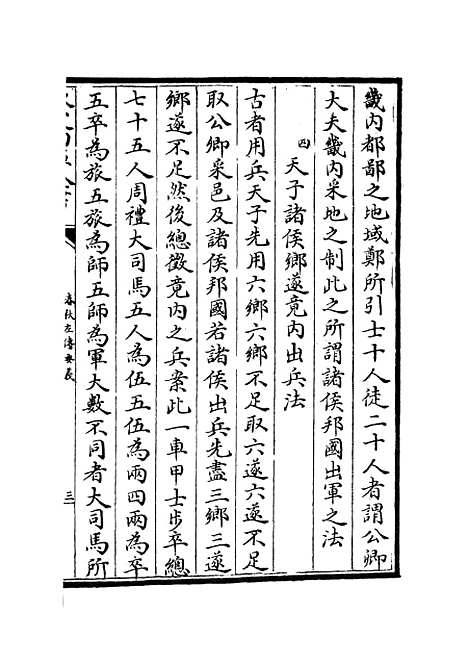 畿内都鄙之地域鄭所引士十人徒二十人者謂公卿
大夫畿内采地之制此之所謂諸侯邦國出軍之法
四 天子諸侯鄉遂竟内出兵法
古者用兵天子先用六鄉六鄉不足取六遂六遂不足
取公卿采邑及諸侯邦國若諸侯出兵先盡三鄉三遂
鄉遂不足然後總徵竟内之兵案此一車甲士步卒總
七十五人周禮大司馬五人為伍五伍為兩四兩為卒
五卒為旅五旅為師五師為軍大數不同者大司馬所
春秋左傳要義
三